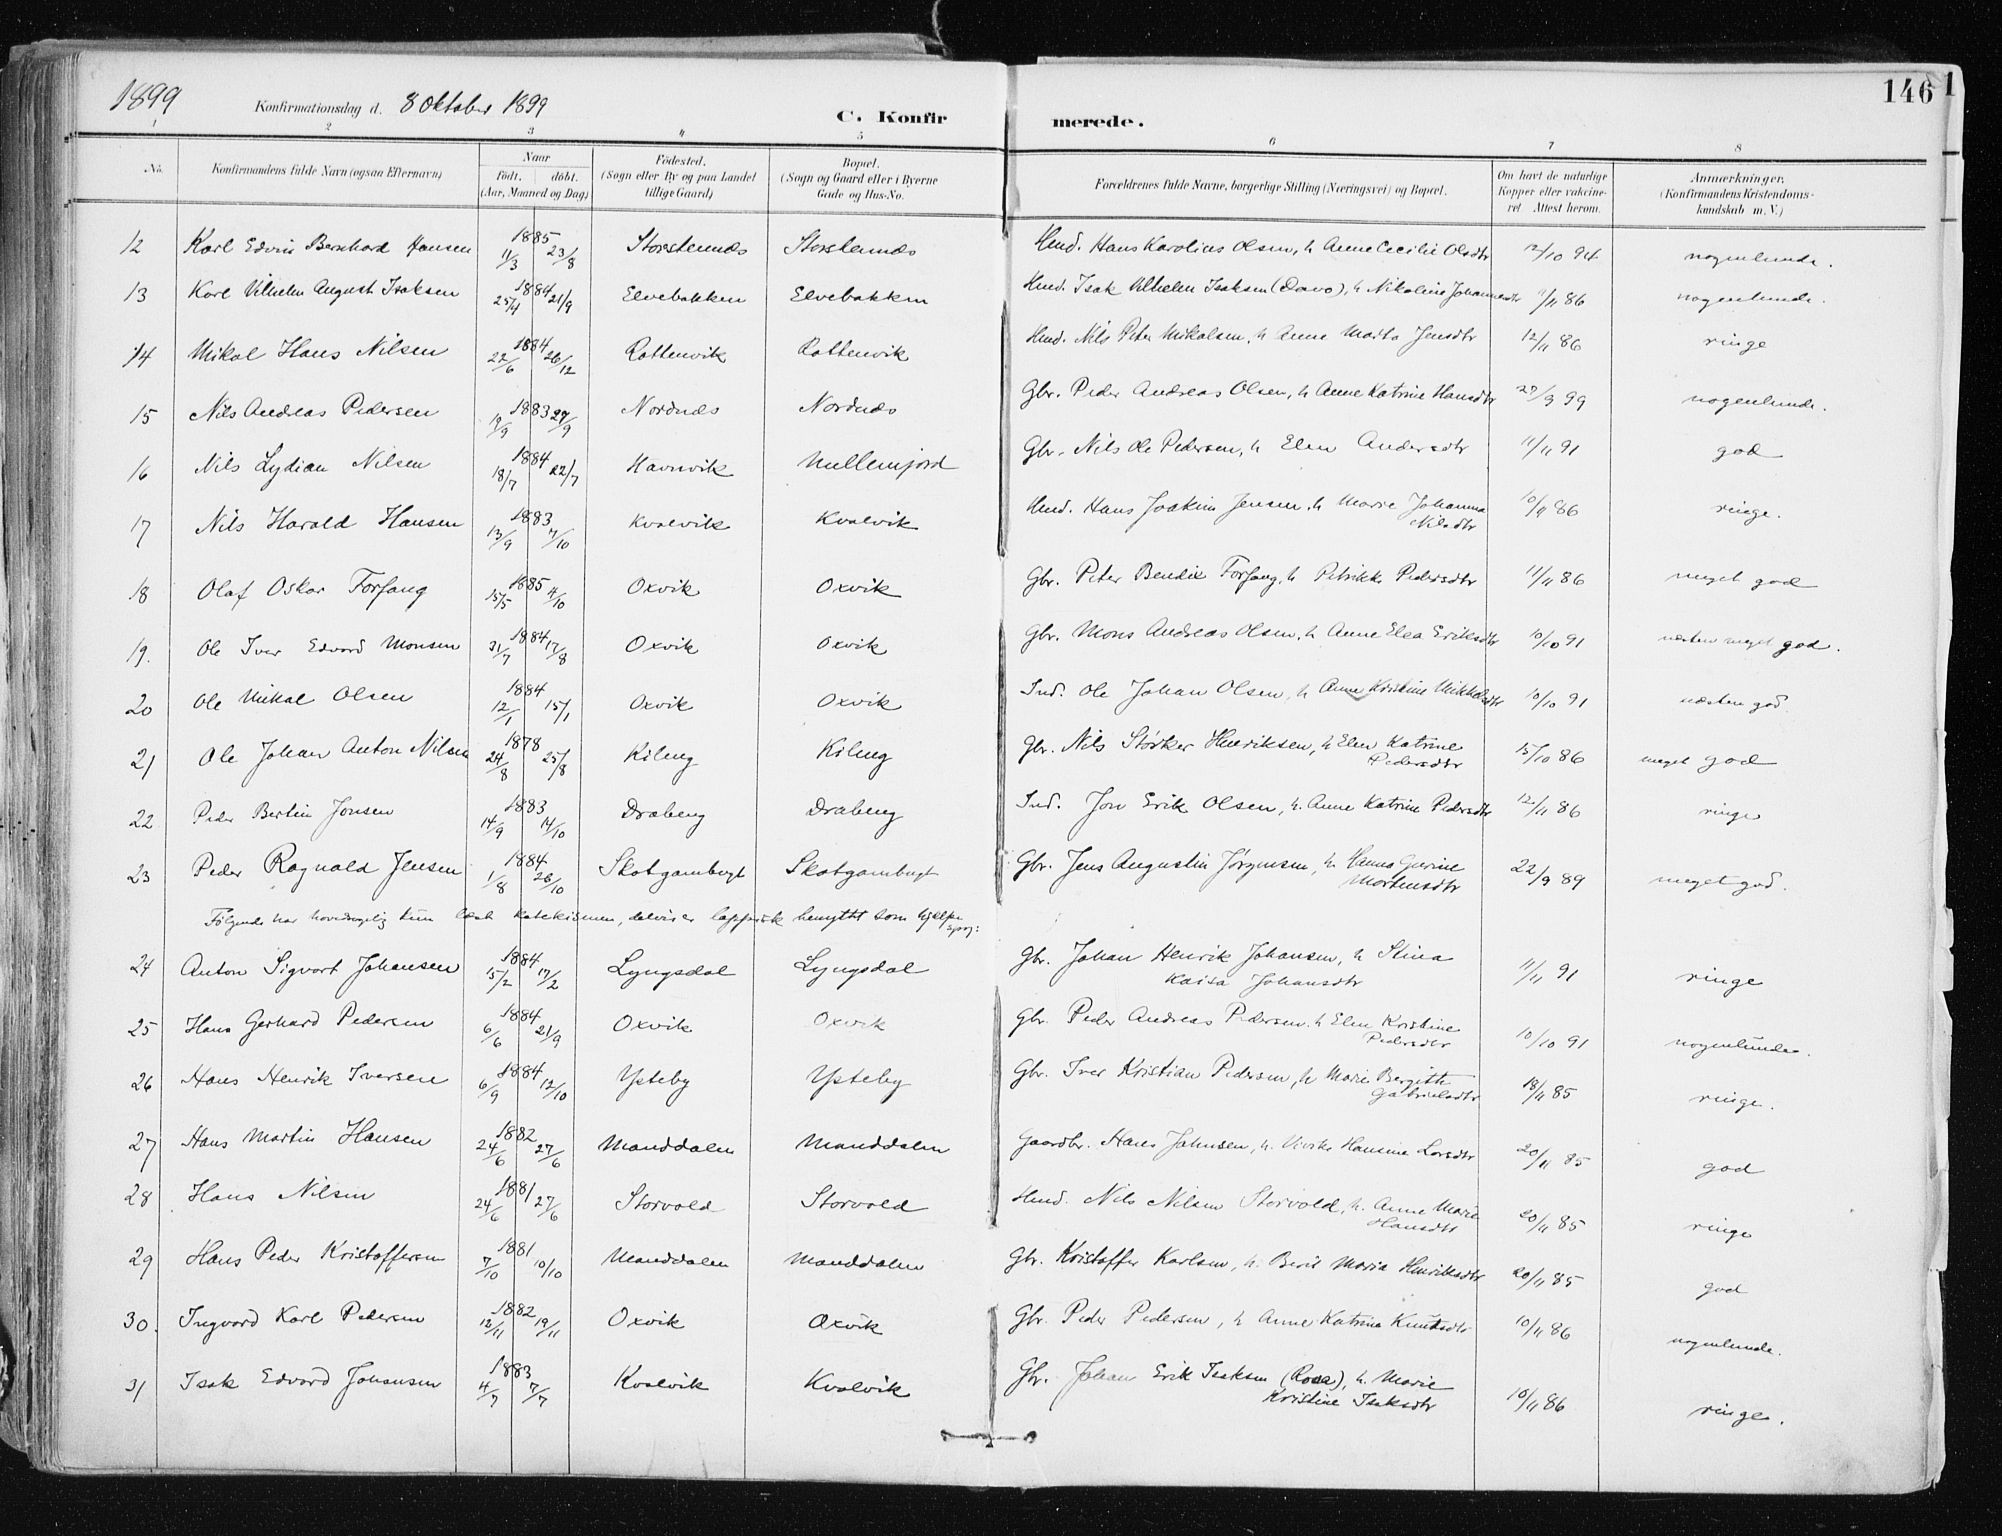 1899 Konfirmationsdag d. 8 Oktober 1899 C. Konfirmerede. 146
1 2 3 4 5 6 7 8
No. Konfirmandens fulde Navn (ogsaa Efternavn) Naar födt. döbt. (Aar, Maaned og Dag) Födested. (Sogn eller By og paa Landet tillige Gaard) Bopæl. (Sogn og Gaard eller i Byerne Gade og Hus-No. Forældrenes fulde Navne, borgerlige Stilling (Næringsvei) og Bopæl. Om havt de naturlige Kopper eller vakcineret. Attest herom. Anmærkninger. (Konfirmandens Kristendomskundskab m. V.)
12 Karl Edvin Bernhard Hansen 1885 11/3 23/8 Storstennæs Storstennæs Hmd. Hans Karolius Olsen, h. Anne Cecilie Olsdtr 12/10 94 nogenlunde.
13 Karl Vilhelm August Isaksen 1884 25/4 21/9 Elvebakken Elvebakken Hmd. Isak Vilhelm Isaksen (Davo), h. Nikoline Johannesdtr 86 nogenlunde.
14 Mikal Hans Nilsen 1884 22/6 26/12 Rottenvik Rottenvik Hmd. Nils Peter Mikalsen, h. Anne Marta Jensdtr 12/11 86 ringe
15 Nils Andreas Pedersen 1883 19/9 29/9 Nordnæs Nordnæs Gbr. Peder Andreas Olsen, h. Anne Katrine Hansdtr 27/9 99 nogenlunde.
16 Nils Lydian Nilsen 1884 18/7 22/7 Havnvik Nullemfjord Gbr. Nils Ole Pedersen, h. Elen Andersdtr 11/11 91 god
17 Nils Harald Hansen 1883 13/9 7/10 Kvalvik Kvalvik Hmd. Hans Joakim Jensen, h. Marie Johanna Nilsdtr 10/11 86 ringe.
18 Olaf Oskar Forfang 1885 15/5 4/10 Oxvik Oxvik Gbr. Peter Bendix Forfang, h. Petrikke Pedersdtr 11/11 86 meget god
19. Ole Iver Edvard Monsen 1884 31/7 17/8 Oxvik Oxvik Gbr. Mons Andreas Olsen, h. Anne Elea Eriksdtr 10/10 91 næsten meget god.
20 Ole Mikal Olsen 1884 12/1 15/1 Oxvik Oxvik Ind. Ole Johan Olsen, h. Anne Kristine Mikkelsdtr 10/10 91 næsten god
21 Ole Johan Anton Nilsen 1878 24/8 25/8 Kileng Kileng Gbr. Nils Størker Henriksen, h. Elen Katrine Pedersdtr 15/10 86 meget god
22 Peder Bertin Jonsen 1883 14/9 14/10 Drabeng Drabeng Ind. Jon Erik Olsen, h. Anne Katrine Pedersdtr 12/11 86 ringe
23 Peder Ragnvald Jensen 1884 1/8 26/10 Skatgambugt Skatgambugt Gbr. Jens Augustin Jørgensen, h. Hanna Gurine Mortensdtr 22/9 89 meget god.
Følgende har hovedsagelig kun læst katekismen, delvis er lappisk benyttet som hjelpesprog:
24 Anton Sigvart Johansen 1884 15/2 17/2 Lyngsdal Lyngsdal Gbr. Johan Henrik Johansen, h. Stina Kaisa Johansdtr 11/11 91 ringe
25 Hans Gerhard Pedersen 1884 6/6 21/9 Oxvik Oxvik Gbr. Peder Andreas Pedersen, h. Elen Kristine Pedersdtr 10/10 91 nogenlunde.
26 Hans Henrik Iversen 1884 6/9 12/10 Ysteby Ysteby Gbr. Iver Kristian Pedersen, h. Marie Bergith Gabrielsdtr 18/11 85 ringe.
27 Hans Martin Hansen 1882 24/6 27/6 Manddalen Manddalen Gaardbr. Hans Johnsen, h. Vivike Hansine Larsdtr 20/11 85 god
28 Hans Nilsen 1881 24/6 27/6 Storvold Storvold Hmd. Nils Nilsen Storvold, h. Anne Marie Hansdtr 20/11 85 ringe
29 Hans Peder Kristoffersen 1881 7/10 10/10 Manddalen Manddalen Gbr. Kristoffer Karlsen, h. Berit Maria Henriksdtr 20/11 85 god
30. Ingvard Karl Pedersen 1882 12/11 19/11 Oxvik Oxvik Gbr. Peder Pedersen, h. Anne Katrina Knutsdtr 10/11 86 nogenlunde.
31 Isak Edvard Johansen 1883 4/7 7/7 Kvalvik Kvalvik Gbr. Johan Erik Isaksen (Rosa), h. Marie Kristine Isaksdtr 10/11 86 ringe.